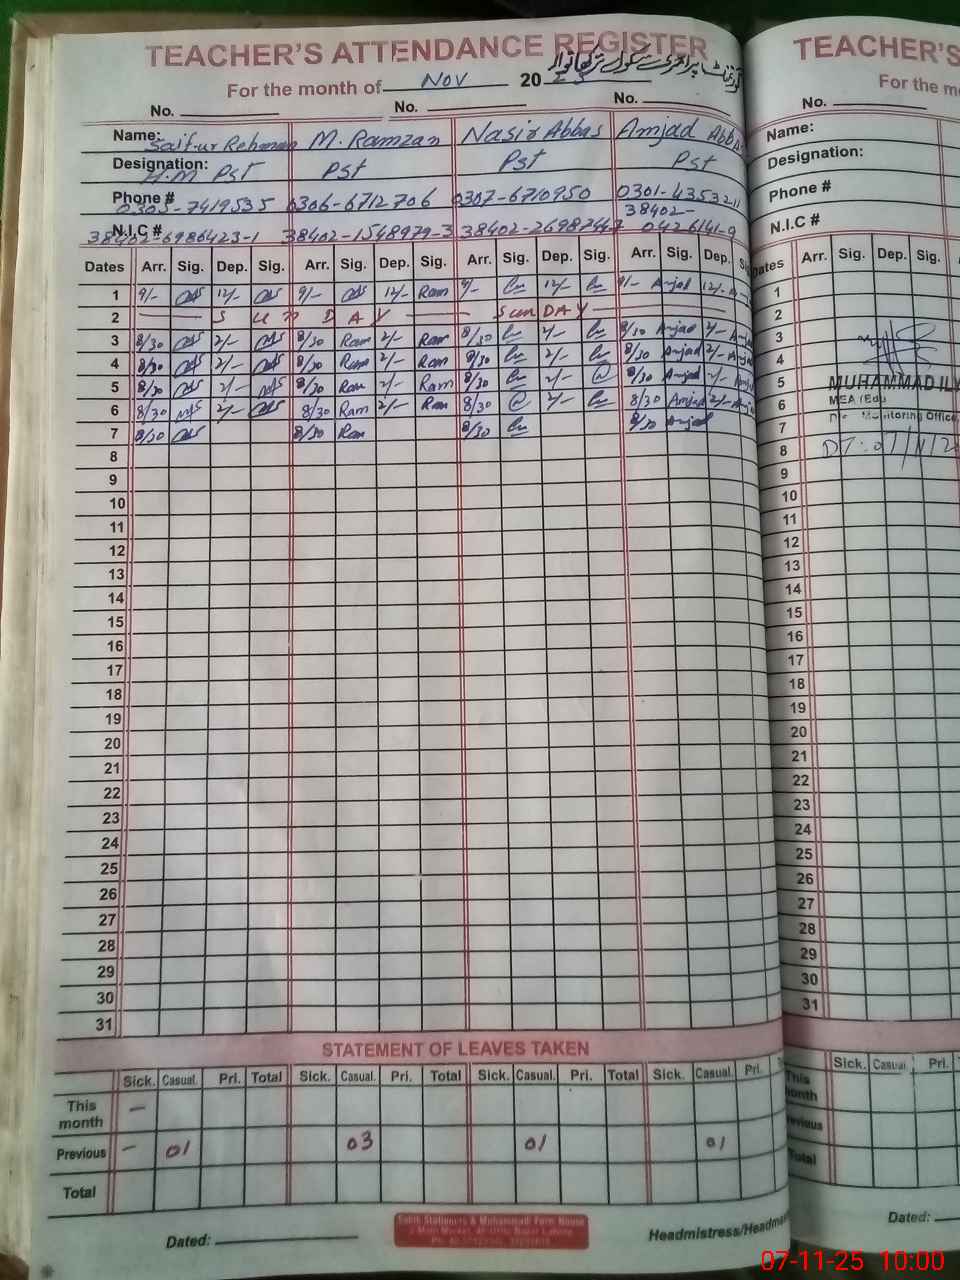 TEACHER'S ATTENDANCE REGISTER
گورنمنٹ پرائمری سکول
For the month of Nov 20
No. No. No.
Name: Saif-ur-Rehman M. Ramzan Nasir Abbas Amjad Abbas
Designation: H.M Pst Pst Pst Pst
Phone # 0305-7419535 0306-6712706 0307-6710950 0301-4353211
N.I.C # 38402-6986423-1 38402-1548979-3 38402-26987447 38402-0426141-9
Dates Arr. Sig. Dep. Sig. Arr. Sig. Dep. Sig. Arr. Sig. Dep. Sig. Arr. Sig. Dep. Sig.
1 9/- 12/- 9/- 12/- Ram 9/- 12/- 9/- Amjad 12/-
2 SUNDAY SunDAY
3 8/30 2/- 8/30 Ram 2/- Ram 8/30 2/- 8/30 Amjad 2/- Amjad
4 8/30 2/- 8/30 Ram 2/- Ram 8/30 2/- 8/30 Amjad 2/- Amjad
5 8/30 2/- 8/30 Ram 2/- Ram 8/30 2/- 8/30 Amjad 2/- Amjad
6 8/30 2/- 8/30 Ram 2/- Ram 8/30 2/- 8/30 Amjad 2/- Amjad
7 8/30 8/30 Ram 8/30 8/30 Amjad
8
9
10
11
12
13
14
15
16
17
18
19
20
21
22
23
24
25
26
27
28
29
30
31
STATEMENT OF LEAVES TAKEN
Sick. Casual. Pri. Total Sick. Casual. Pri. Total Sick. Casual. Pri. Total Sick. Casual. Pri.
This month -
Previous - 01 03 01 01
Total
Dated:
Headmistress/Headma
TEACHER'S
For the mo
No.
Name:
Designation:
Phone #
N.I.C #
Dates Arr. Sig. Dep. Sig.
1
2
3
4
5 MUHAMMAD ILY
6 MEA (Edu
7 Monitoring Office
8 DT: 07/11/20
9
10
11
12
13
14
15
16
17
18
19
20
21
22
23
24
25
26
27
28
29
30
31
Sick. Casual. Pri.
This month
Previous
Total
Dated:
07-11-25 10:00